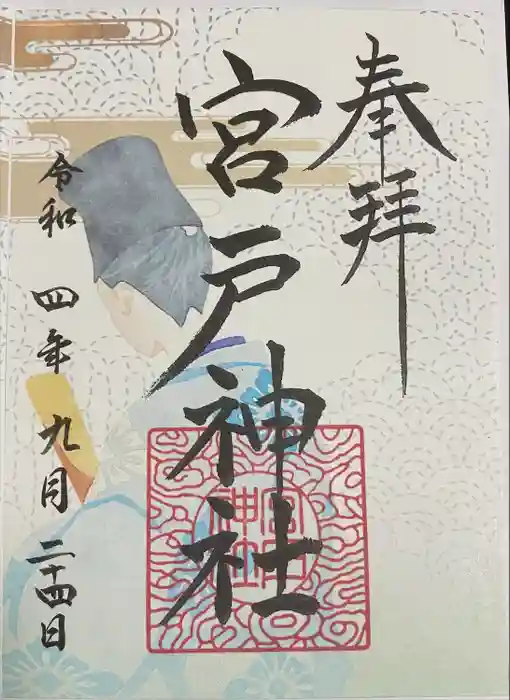 奉拝
宮戸神社
令和四年九月二十四日
宮戸神社